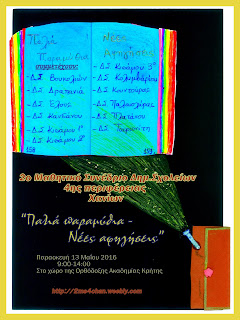 Παλιά
Παραμύθια
Νέες
Αφηγήσεις
- ΔΣ Βουκολιών
- ΔΣ Δραπανιά
- ΔΣ Έλους
- ΔΣ Κανδάνου
- ΔΣ Κισάμου 1ο
- ΔΣ Κισάμου 2ο
158
- ΔΣ Κισάμου 3ο
- ΔΣ Κολυμβαρίου
- ΔΣ Κουντούρας
- ΔΣ Παλαιοχώρας
- ΔΣ Πλατάνου
- ΔΣ Ταυρωνίτη
159
2ο Μαθητικό Συνέδριο Δημ.Σχολείων
4ης περιφέρειας
Χανίων
"Παλιά παραμύθια -
Νέες αφηγήσεις"
Παρασκευή 13 Μαΐου 2016
9:00-14:00
Στο χώρο της Ορθόδοξης Ακαδημίας Κρήτης
http://2ms4chan.weebly.com